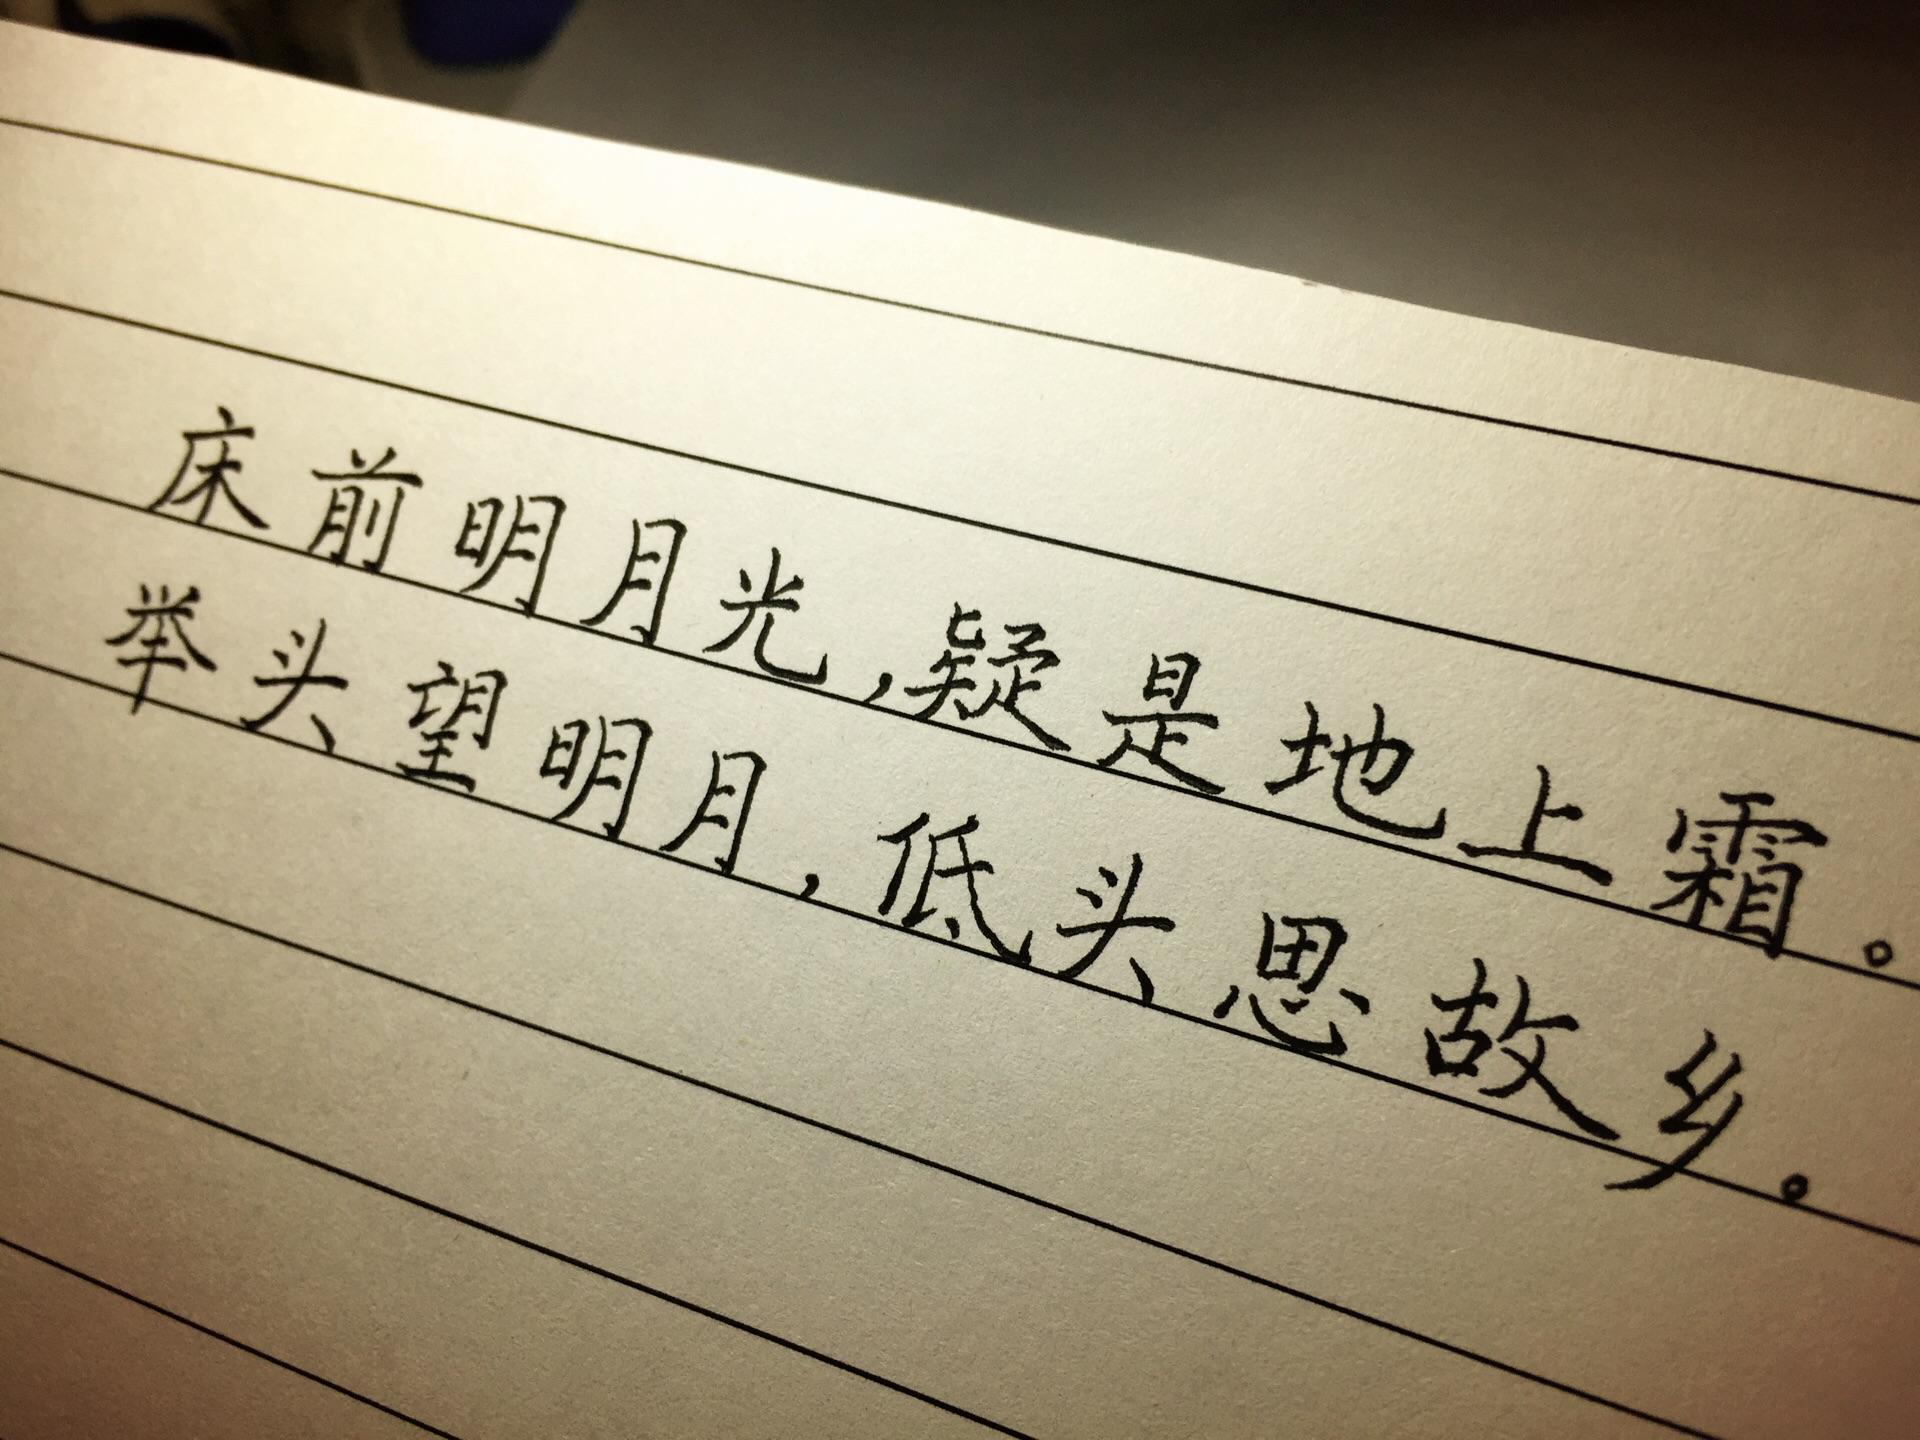 床前明月光,疑是地上霜。
举头望明月,低头思故乡。